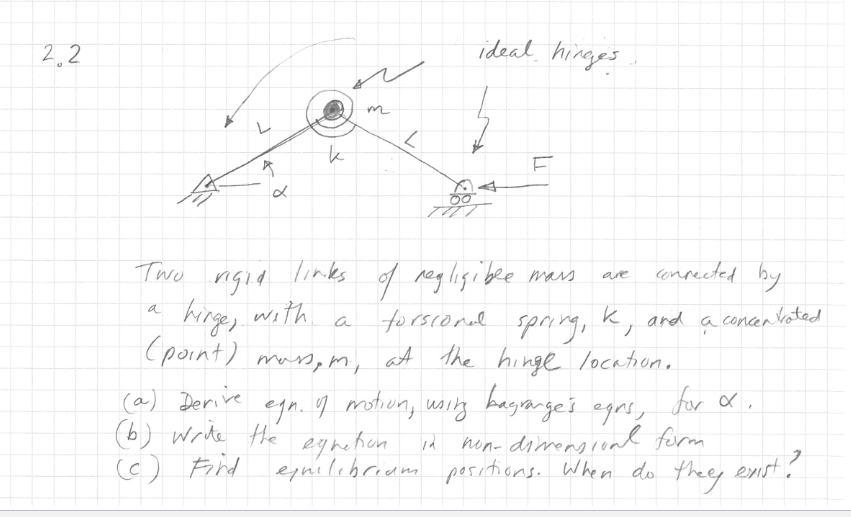 2.2
ideal hinges.
m
L
L
k
F
α
Two rigid links of negligible mass are connected by
a hinge, with a torsional spring, k, and a concentrated
(point) mass, m, at the hinge location.
(a) Derive eqn. of motion, using Lagrange's eqns, for α.
(b) Write the equation in non-dimensional form
(c) Find equilibrium positions. When do they exist?